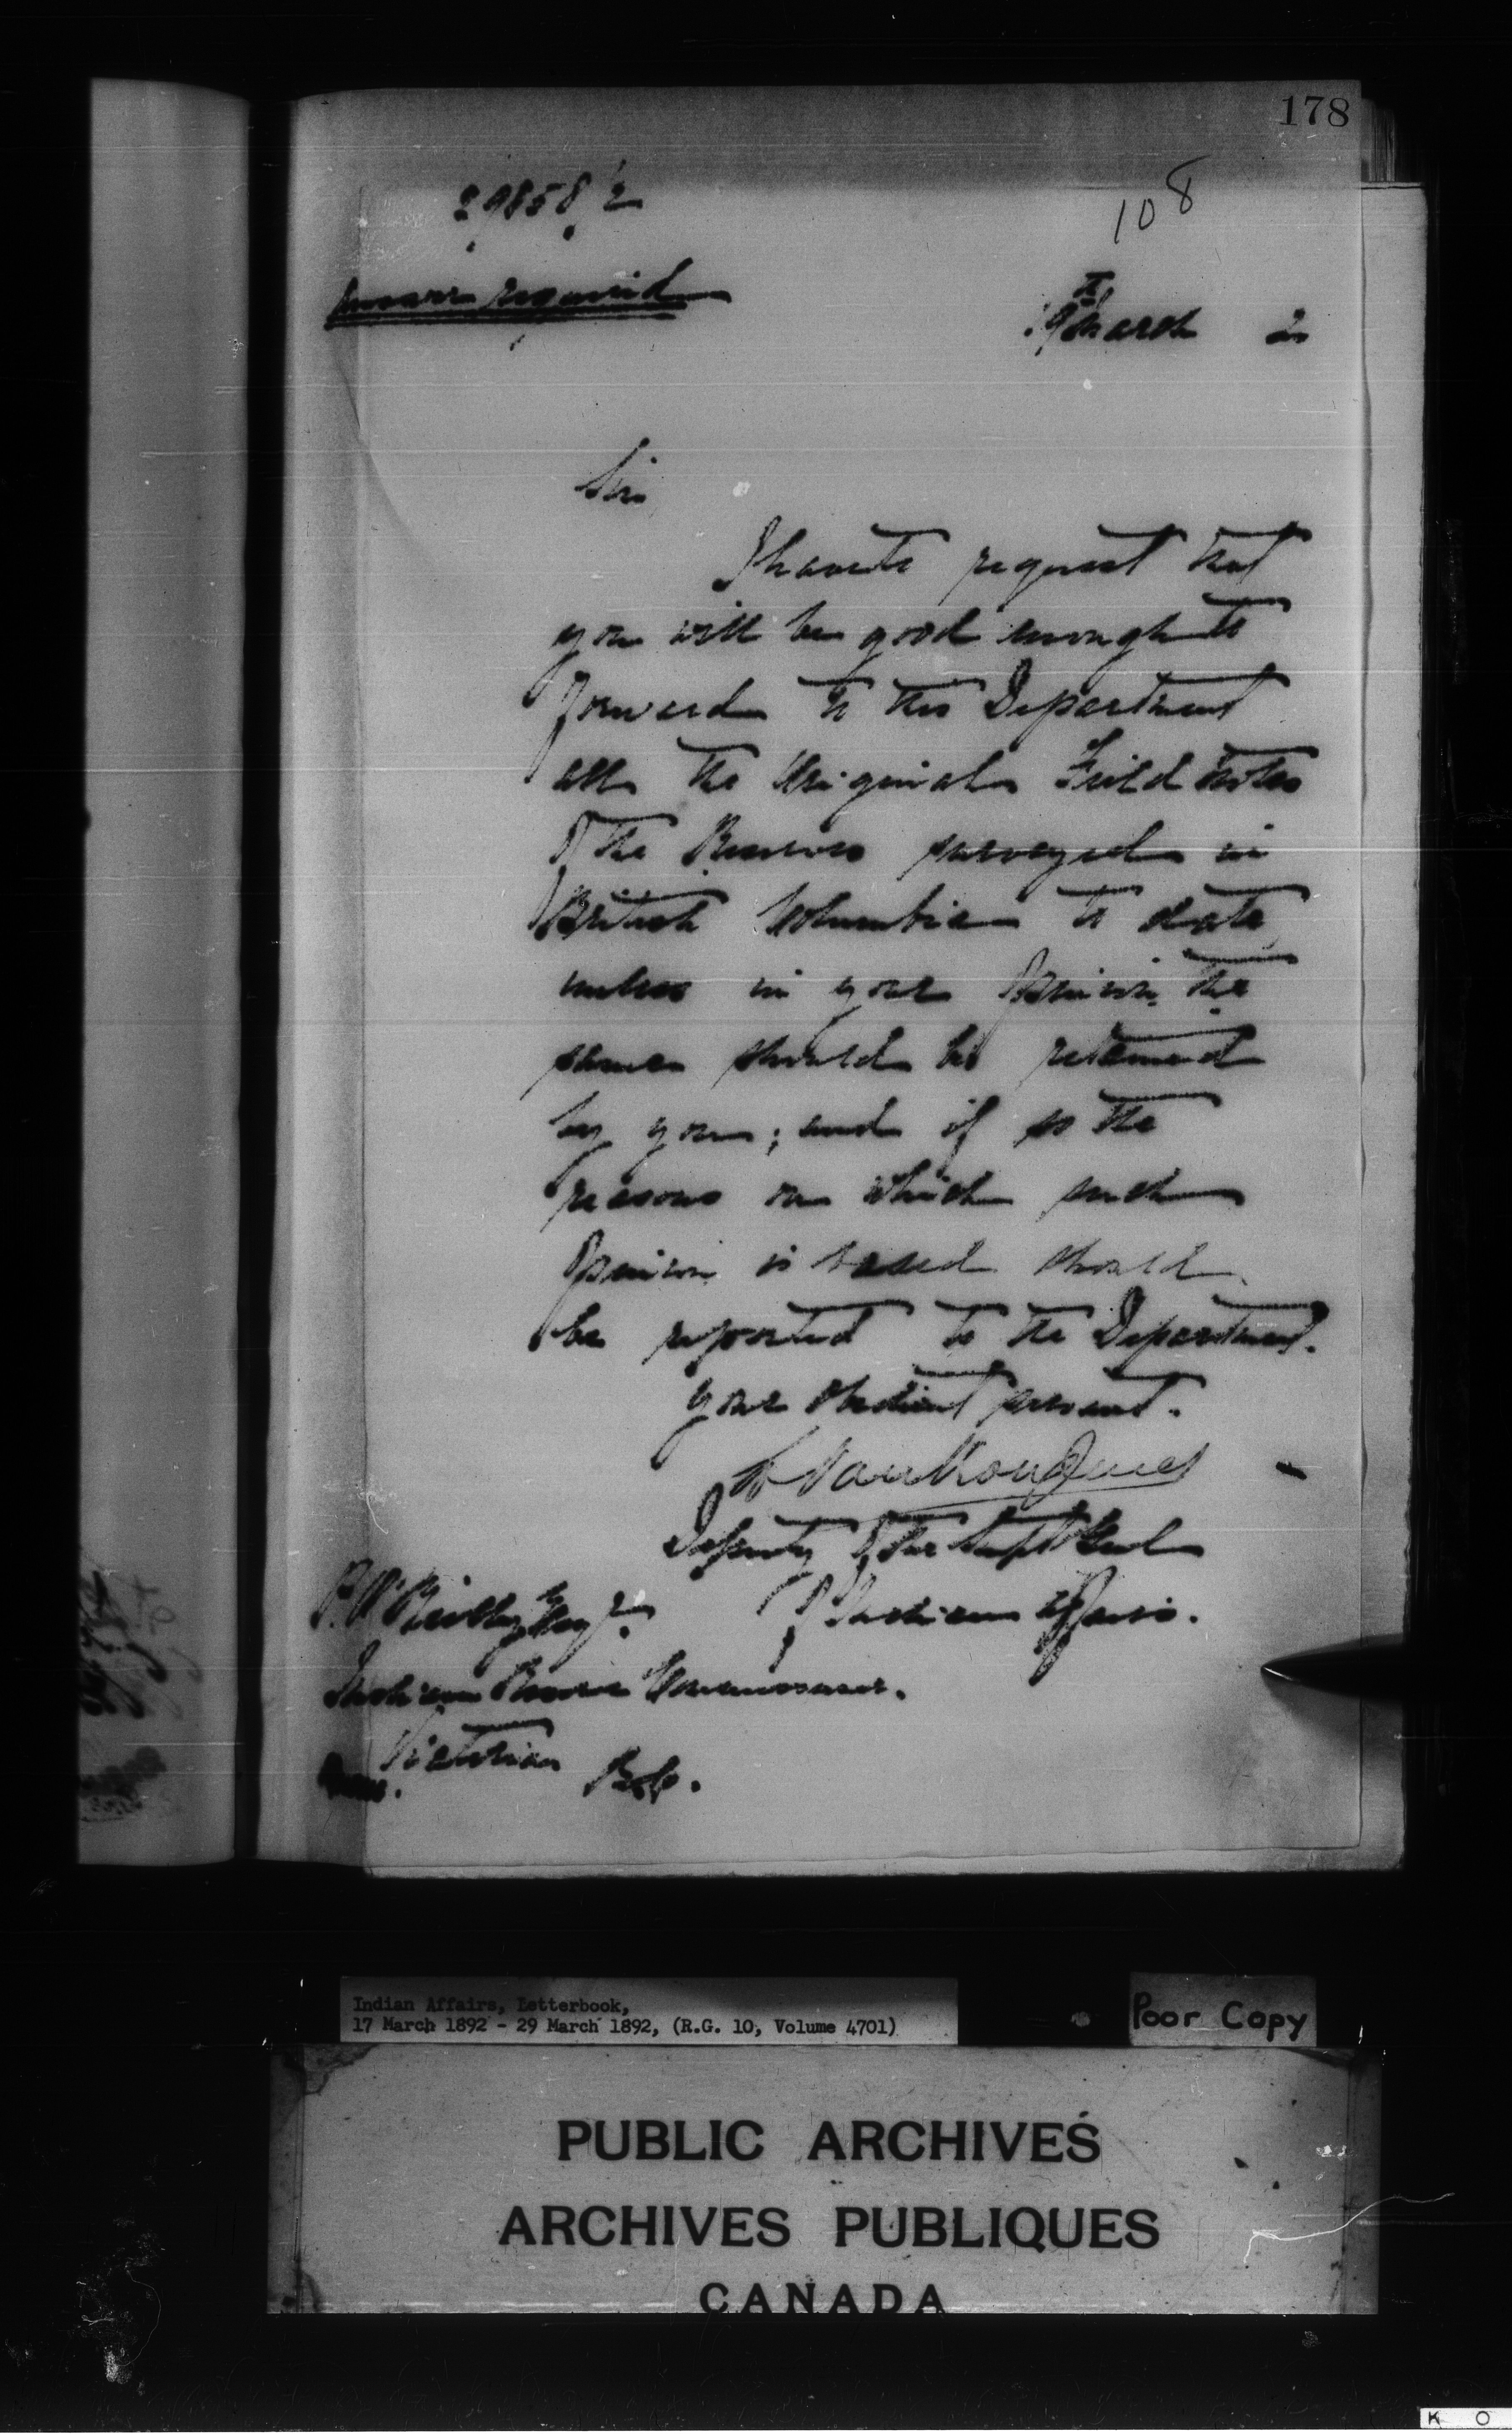 178
108
29858/2
Answer required
19th March 2
Sir
I have to request that
you will be good enough to
forward to this Department
all the Original Field Notes
of the Reserves surveyed in
British Columbia to date
unless in your opinion the
same should be retained
by you; and if so the
reasons on which such
opinion is based should
be reported to the Department.
Your obedient servant.
L. VanKoughnet
Deputy of the Supt Genl
of Indian Affairs.
P. O'Reilly Esqr.
Indian Reserve Commissioner.
Victoria
B.C.
Indian Affairs, Letterbook,
17 March 1892 - 29 March 1892, (R.G. 10, Volume 4701)
Poor Copy
PUBLIC ARCHIVES
ARCHIVES PUBLIQUES
CANADA
K O